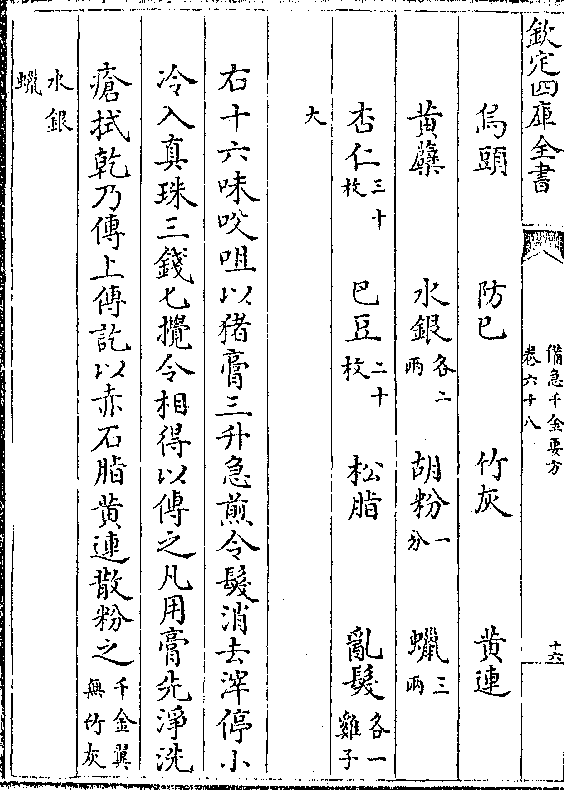 欽定四庫全書
備急千金要方
卷六十八
十六
烏頭 防巳 竹灰 黄連
黄蘗 水銀各二兩 胡粉一分 蠟三兩
杏仁三十枚 巴豆二十枚 松脂 亂髮各一雞子
大
右十六味㕮咀以猪膏三升急煎令髮消去滓停小
冷入真珠三錢匕攪令相得以傅之凡用膏先淨洗
瘡拭乾乃傅上傅訖以赤石脂黄連散粉之千金翼無竹灰
水銀蠟